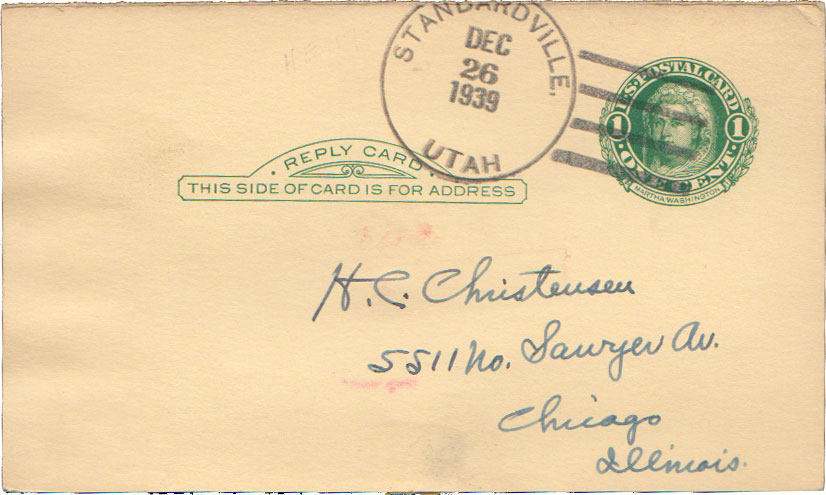 STANDARDVILLE,
DEC
26
1939
UTAH
U.S. POSTAL CARD
1 1
· ONE CENT ·
MARTHA WASHINGTON
· REPLY CARD ·
THIS SIDE OF CARD IS FOR ADDRESS
H. C. Christensen
5511 No. Sawyer Av.
Chicago
Illinois.